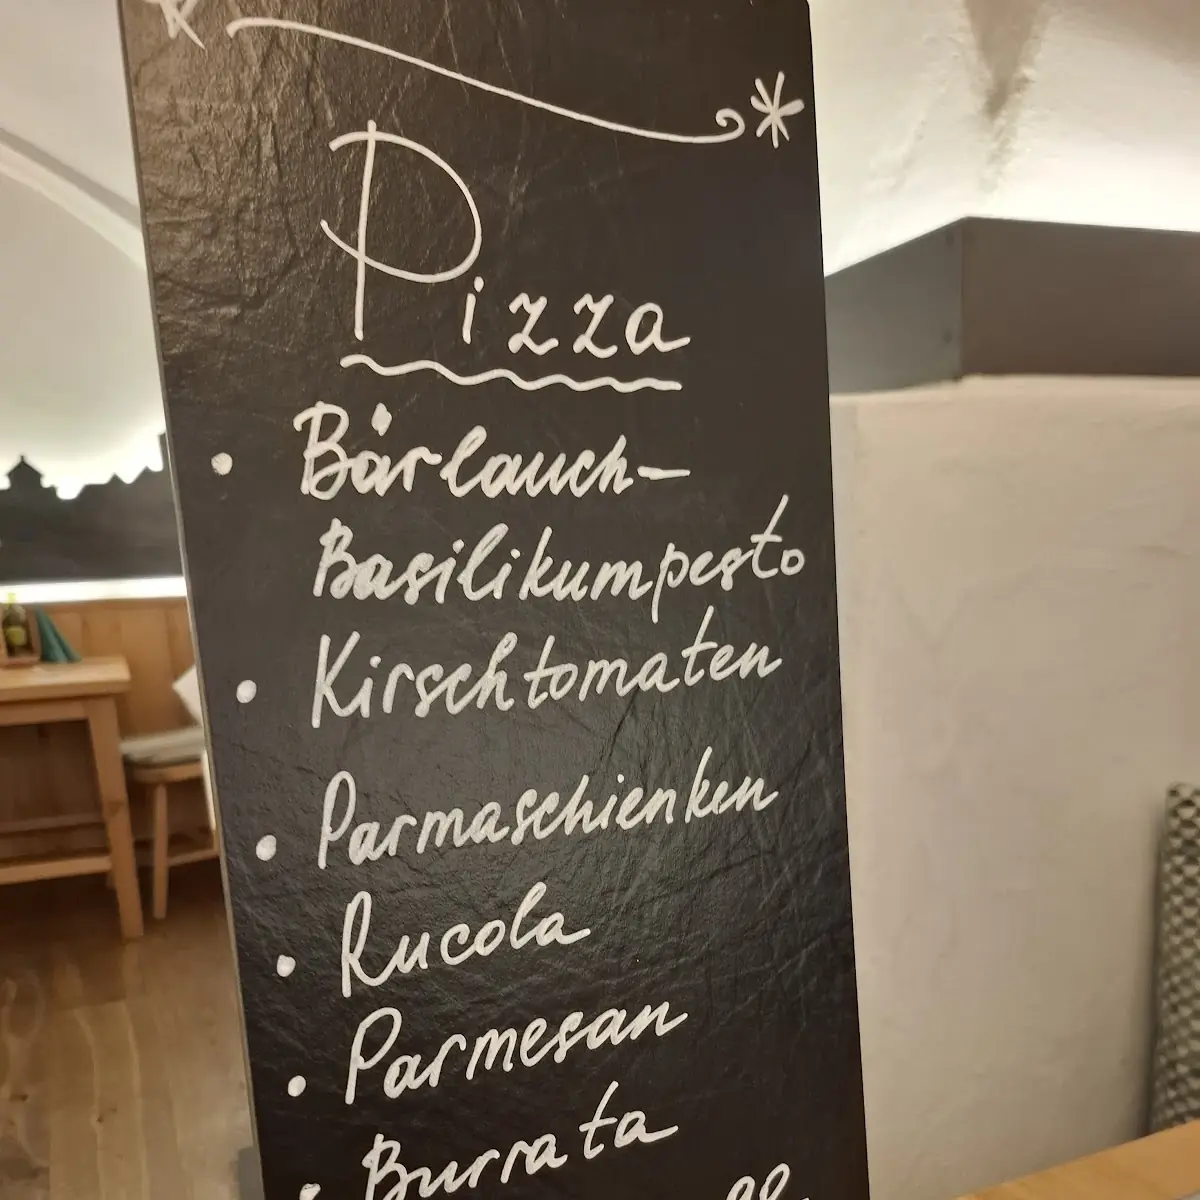 Pizza
• Bärlauch-
Basilikumpesto
• Kirschtomaten
• Parmaschienken
• Rucola
• Parmesan
• Burrata